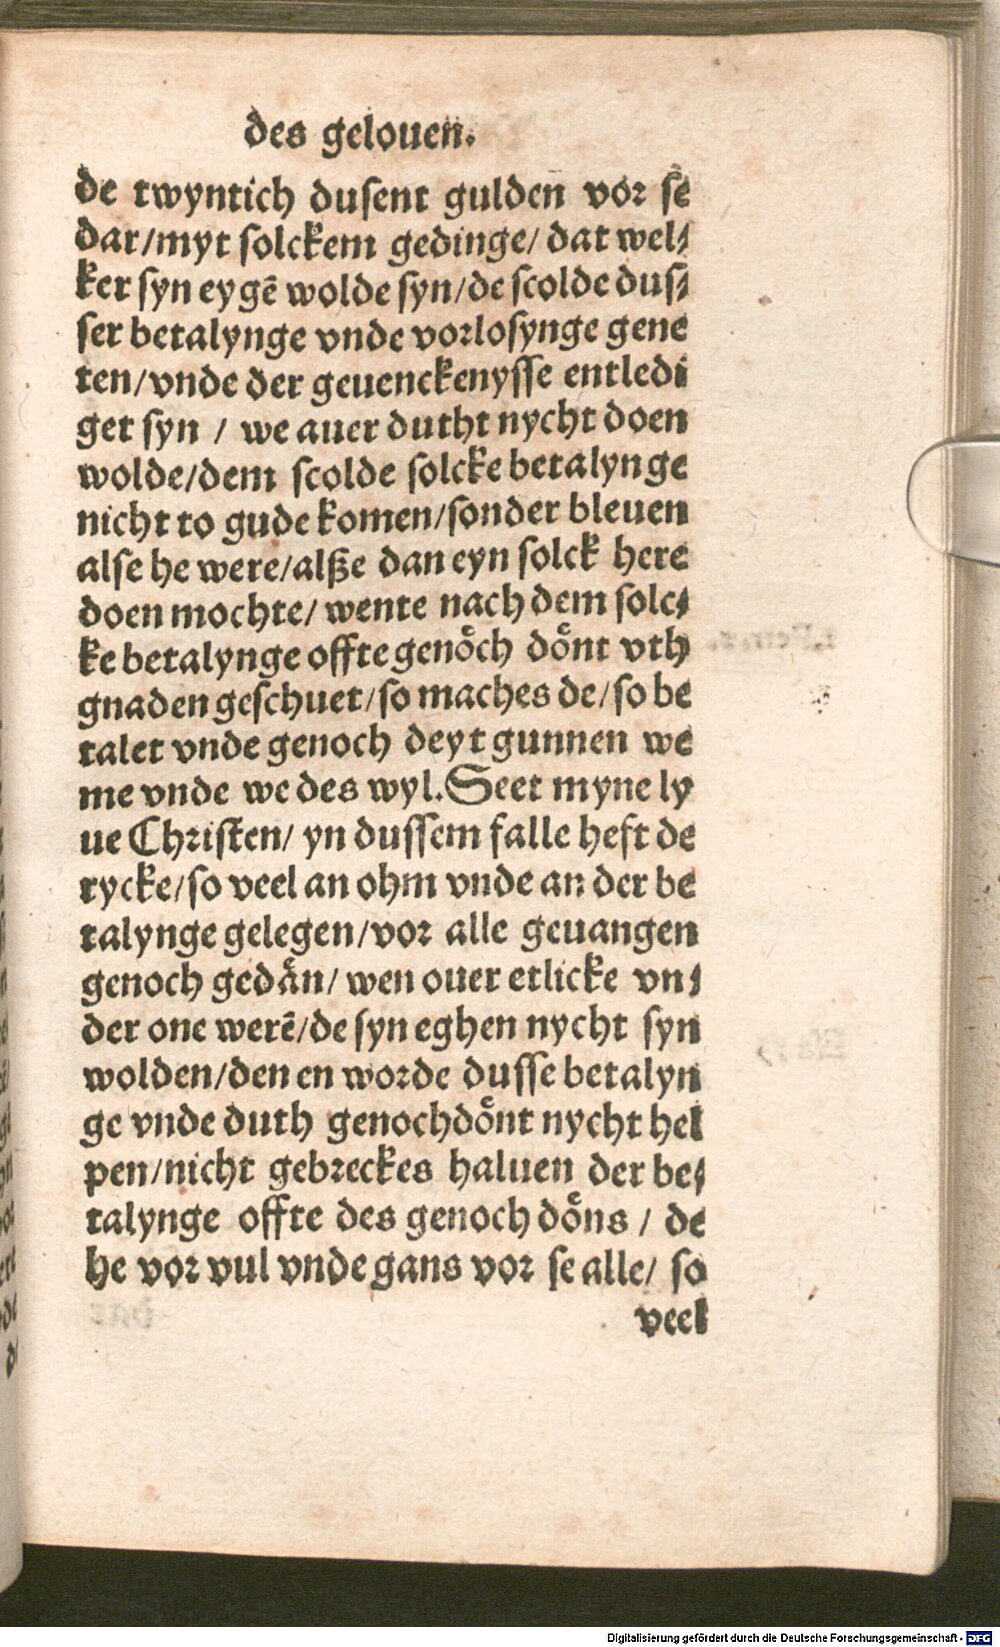 des gelouen.
de twyntich dusent gulden vor se
dar/myt solckem gedinge/ dat wel⸗
ker syn eygē wolde syn/de scolde dus⸗
ser betalynge vnde vorlosynge gene
ten/vnde der geuenckenysse entledi
get syn / we auer dutht nycht doen
wolde/dem scolde solcke betalynge
nicht to gude komen/sonder bleuen
alse he were/alße dan eyn solck here
doen mochte/ wente nach dem solc⸗
ke betalynge offte genoͤch doͤnt vth
gnaden geschuet/so maches de/so be
talet vnde genoch deyt gunnen we
me vnde we des wyl.Seet myne ly
ue Christen/ yn dussem falle heft de
rycke/so veel an ohm vnde an der be
talynge gelegen/vor alle geuangen
genoch gedaͤn/ wen ouer etlicke vn⸗
der one werē/de syn eghen nycht syn
wolden/den en worde dusse betalyn
ge vnde duth genochdoͤnt nycht hel
pen/nicht gebreckes haluen der be⸗
talynge offte des genoch doͤns / de
he vor vul vnde gans vor se alle/ so
veel
Digitalisierung gefördert durch die Deutsche Forschungsgemeinschaft - DFG